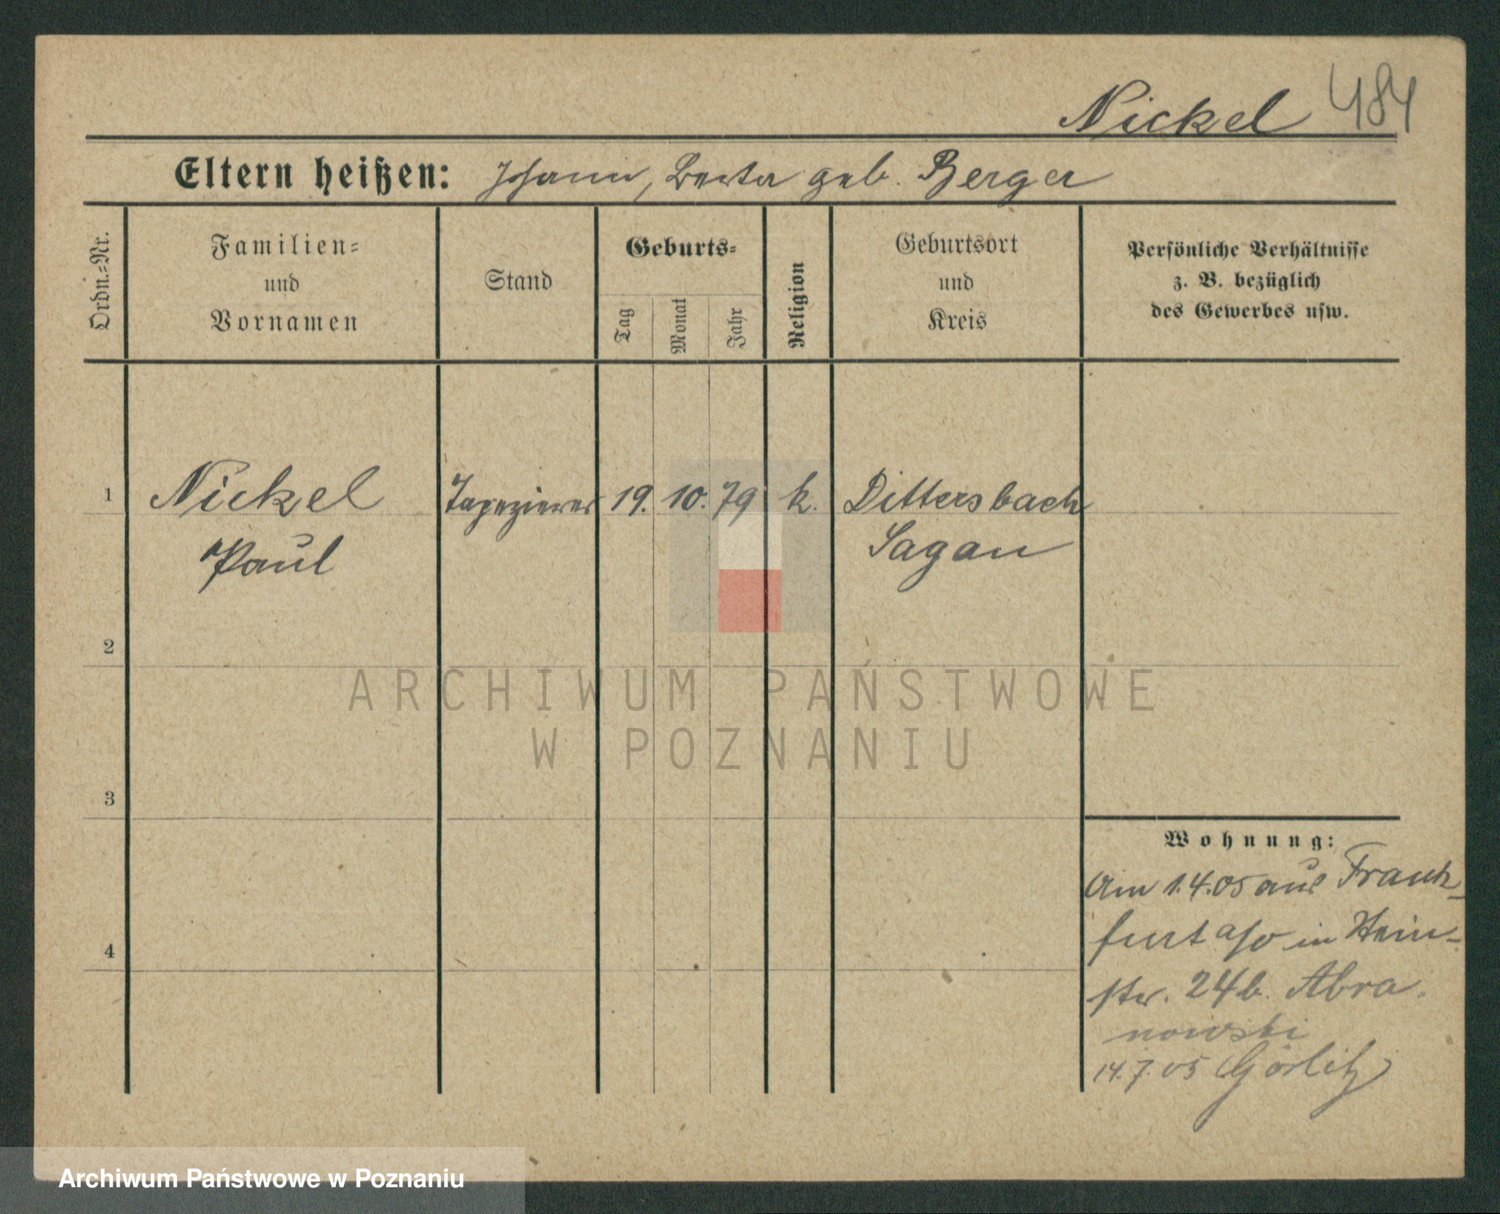 Nickel 484
Eltern heißen: Johann, Berta geb. Berger
Ordn.-Nr.
Familien-
und
Vornamen
Stand
Geburts-
Tag
Monat
Jahr
Religion
Geburtsort
und
Kreis
Persönliche Verhältnisse
z. B. bezüglich
des Gewerbes usw.
1 Nickel Tapezierer 19. 10. 79 k. Dittersbach
Paul Sagan
2
ARCHIWUM PAŃSTWOWE
W POZNANIU
3
Wohnung:
Am 1.4.05 aus Frank-
furt a/o in
4
str. 24b. Abra.
nowski
14.7.05 Görlitz
Archiwum Państwowe w Poznaniu